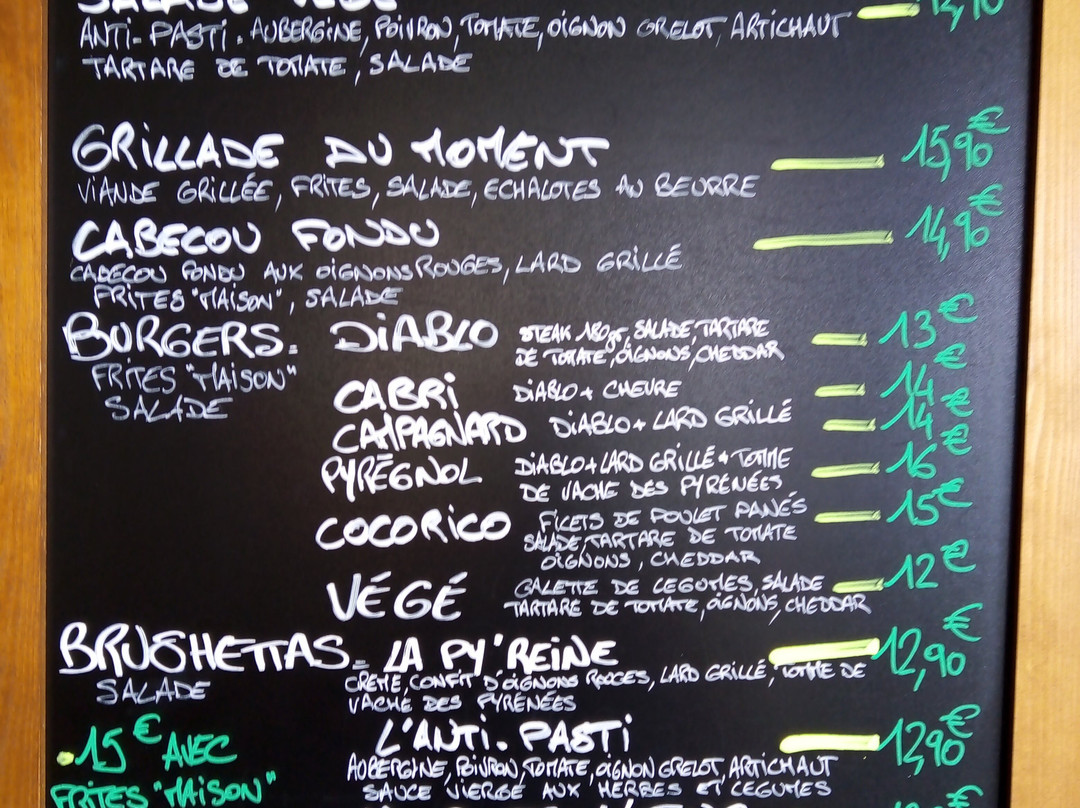 SALADE VÉGÉ
ANTI-PASTI. AUBERGINE, POIVRON, TOMATE, OIGNON GRELOT, ARTICHAUT
TARTARE DE TOMATE, SALADE
GRILLADE DU MOMENT 15,90€
VIANDE GRILLÉE, FRITES, SALADE, ECHALOTES AU BEURRE
CABECOU FONDU 14,90€
CABECOU FONDU AUX OIGNONS ROUGES, LARD GRILLÉ
FRITES "MAISON", SALADE
BURGERS: DIABLO STEAK 180gr, SALADE, TARTARE 13€
DE TOMATE, OIGNONS, CHEDDAR
FRITES "MAISON"
SALADE
CABRI DIABLO + CHEVRE 14€
CAMPAGNARD DIABLO + LARD GRILLÉ 14€
PYRÉGNOL DIABLO + LARD GRILLÉ + TOMME 16€
DE VACHE DES PYRÉNÉES
COCORICO FILETS DE POULET PANÉS 15€
SALADE, TARTARE DE TOMATE
OIGNONS, CHEDDAR
VÉGÉ GALETTE DE LEGUMES, SALADE 12€
TARTARE DE TOMATE, OIGNONS, CHEDDAR
BRUSHETTAS: LA PY'REINE 12,90€
SALADE
CREME, CONFIT D'OIGNONS ROUGES, LARD GRILLÉ, TOMME DE
VACHE DES PYRÉNÉES
.15€ AVEC
FRITES "MAISON"
L'ANTI-PASTI 12,90€
AUBERGINE, POIVRON, TOMATE, OIGNON GRELOT, ARTICHAUT
SAUCE VIERGE AUX HERBES ET LEGUMES